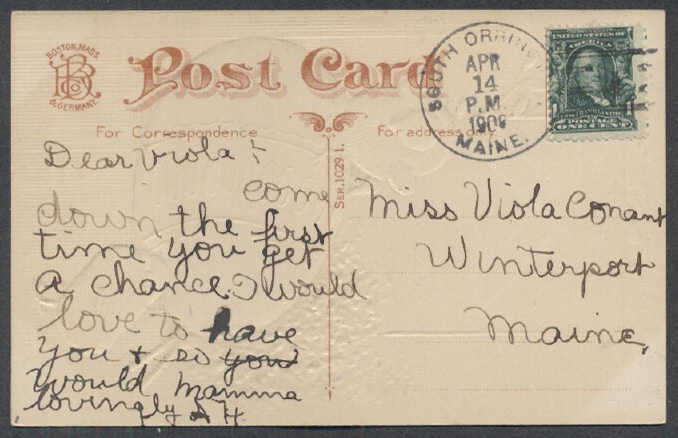 BOSTON, MASS.
BB Co
& GERMANY.
Post Card
For Correspondence
For address only
SER. 1029 1.
SOUTH ORRING
APR
14
P.M.
1908
MAINE.
UNITED STATES OF AMERICA
POSTAGE
ONE CENT
Dear Viola :
come
down the first
time you get
a chance. I would
love to have
you + so you
would mamma
lovingly A H.
Miss Viola Conant
Winterport
Maine,